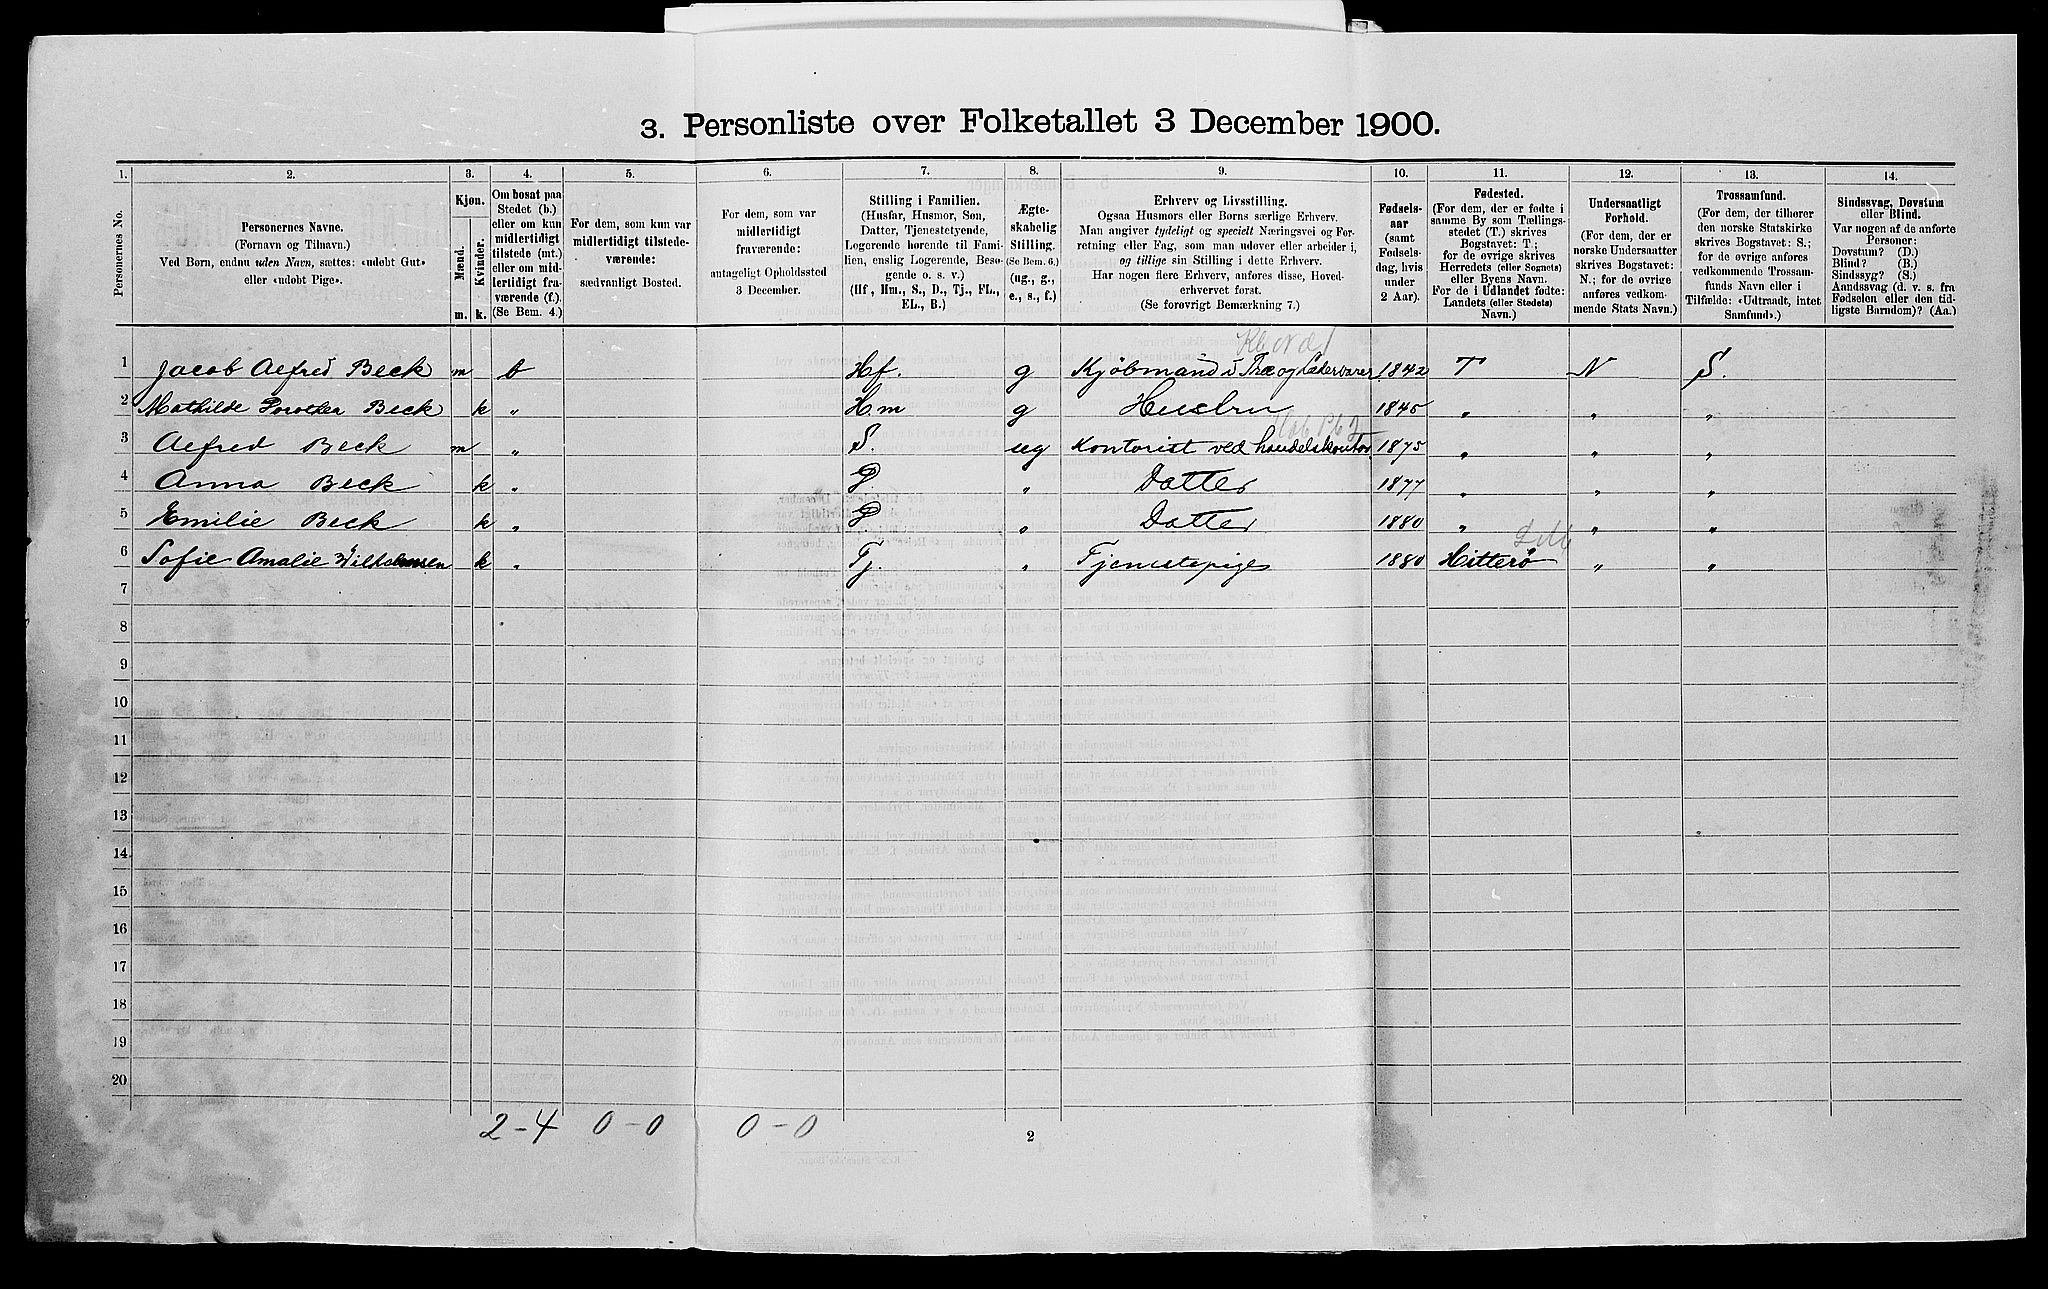 3. Personliste over Folketallet 3 December 1900.
1. 2. 3. 4. 5. 6. 7. 8. 9. 10. 11. 12. 13. 14.
Personernes No.
Personernes Navne.
(Fornavn og Tilnavn.)
Ved Børn, endnu uden Navn, sættes: «udøbt Gut»
eller «udøbt Pige».
Kjøn.
Mænd.
Kvinder.
m. k.
Om bosat paa
Stedet (b.)
eller om kun
midlertidigt
tilstede (mt.)
eller om mid-
lertidigt fra-
værende (f.).
(Se Bem. 4.)
For dem, som kun var
midlertidigt tilstede-
værende:
sædvanligt Bosted.
For dem, som var
midlertidigt
fraværende:
antageligt Opholdssted
3 December.
Stilling i Familien.
(Husfar, Husmor, Søn,
Datter, Tjenestetyende,
Logerende hørende til Fami-
lien, enslig Logerende, Besø-
gende o. s. v.)
(Hf., Hm., S., D., Tj., FL.,
EL., B.)
Ægte-
skabelig
Stilling.
(Se Bem. 6.)
(ug., g.,
e., s., f.)
Erhverv og Livsstilling.
Ogsaa Husmors eller Børns særlige Erhverv.
Man angiver tydeligt og specielt Næringsvei og For-
retning eller Fag, som man udøver eller arbeider i,
og tillige sin Stilling i dette Erhverv.
Har nogen flere Erhverv, anføres disse, Hoved-
erhvervet først.
(Se forøvrigt Bemærkning 7.)
Fødsels-
aar
(samt
Fødsels-
dag, hvis
under
2 Aar).
Fødested.
(For dem, der er fødte i
samme By som Tællings-
stedet (T.) skrives
Bogstavet: T.;
for de øvrige skrives
Herredets (eller Sognets)
eller Byens Navn.
For de i Udlandet fødte:
Landets (eller Stedets)
Navn.)
Undersaatligt
Forhold.
(For dem, der er
norske Undersaatter
skrives Bogstavet:
N.; for de øvrige
anføres vedkom-
mende Stats Navn.)
Trossamfund.
(For dem, der tilhører
den norske Statskirke
skrives Bogstavet: S.;
for de øvrige anføres
vedkommende Trossam-
funds Navn eller i
Tilfælde: «Udtraadt, intet
Samfund».)
Sindssvag, Døvstum
eller Blind.
Var nogen af de anførte
Personer:
Døvstum? (D.)
Blind? (B.)
Sindssyg? (S.)
Aandssvag (d. v. s. fra
Fødselen eller den tid-
ligste Barndom)? (Aa.)
1 Jacob Alfred Beck m b Hf. g Kjøbmand i Træ og Lædervarer 1842 T N S.
2 Mathilde Dorothea Beck k " Hm g Hustru 1845 " " "
3 Alfred Beck m " S. ug Kontorist ved handelskontor 1875 " " "
4 Anna Beck k " D. " Datter 1877 " " "
5 Emilie Beck k " D. " Datter 1880 " " "
6 Sofie Amalie Wilhelmsen k " Tj. " Tjenestepige 1880 Hitterø " "
7
8
9
10
11
12
13
14
15
16
17
18
19
20
2-4 0-0 0-0
2